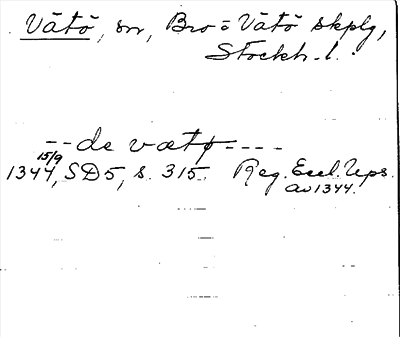 Vätö, sn, Bro- o Vätö skplg,
Stockh. l.
-- de vætø ----
15/9
1344, SD 5, s. 315. Reg. Eccl. Ups.
av 1344.